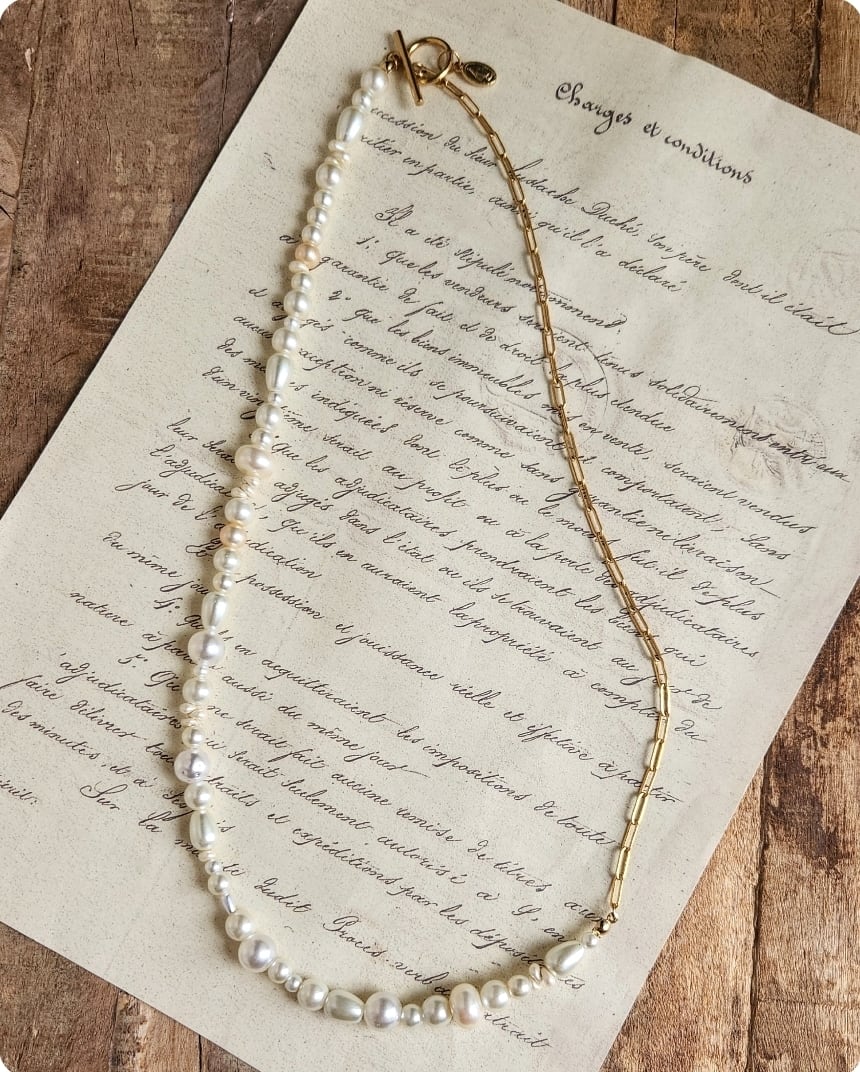 Charges et conditions
succession du sieur Eustache Duché, son père dont il était
héritier en partie, ainsi qu'il l'a déclaré
Il a été stipulé
1° Que les vendeurs tenus solidairement
garantie de fait et de droit la plus étendue
2° Que les biens immeubles mis en vente, seraient vendus
et adjugés comme ils se poursuivaient et comportaient, sans
aucune exception ni réserve comme sans garantie
des indiquées dont le plus ou le moins fut il de plus
d'un serait au profit ou à la perte des adjudicataires
Que les adjudicataires prendraient les biens qui
leur adjugés dans l'état ou ils se trouvaient au jour de
l'adjudication Qu'ils en auraient la propriété à compter du
jour de l'adjudication
possession et jouissance réelle et effective à partir
du même jour
4° acquitteraient les impositions de toute
nature à aussi du même jour
5° Que ne serait fait aucune remise de titres aux
adjudicataires qui serait seulement autorisé à S'en
faire délivrer tous extraits et expéditions par les dépositaires
des minutes, et à
Sur la dudit Procès verbal
extrait